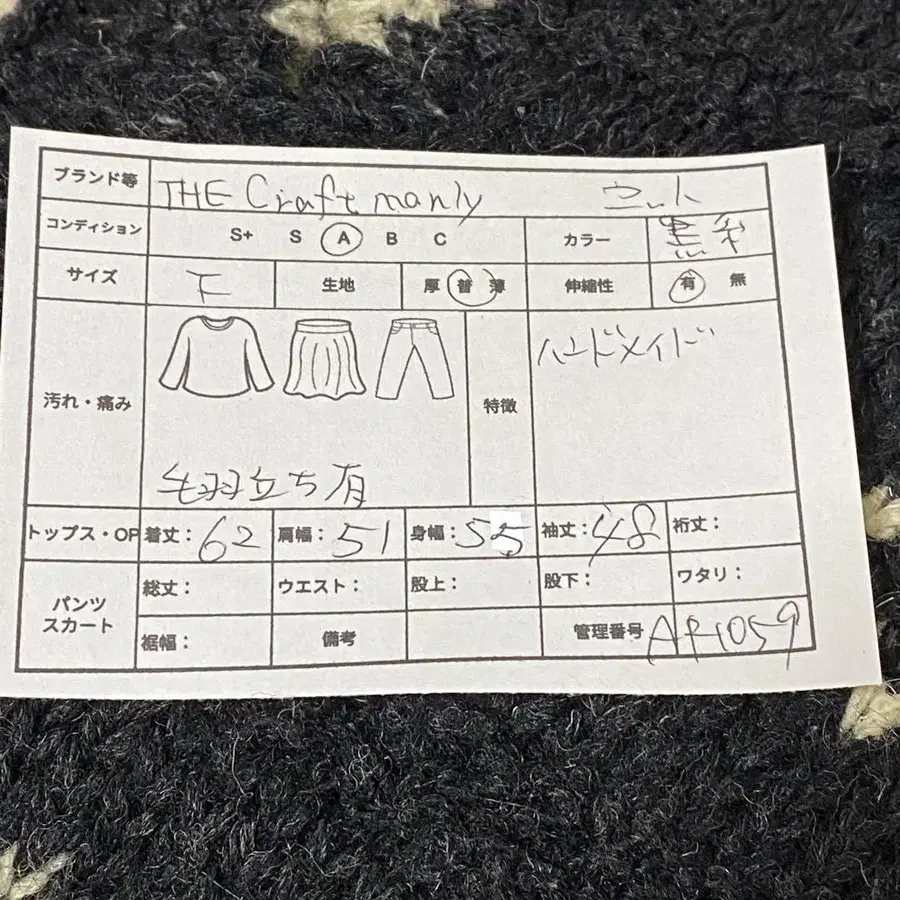 ブランド等 THE Craft manly ニット
コンディション S+ S A B C カラー 黒系
サイズ F 生地 厚 普 薄 伸縮性 有 無
汚れ・痛み 毛羽立ち有 特徴 ハンドメイド
トップス・OP 着丈: 62 肩幅: 51 身幅: 55 袖丈: 48 裄丈:
パンツ スカート 総丈: ウエスト: 股上: 股下: ワタリ:
裾幅: 備考 管理番号